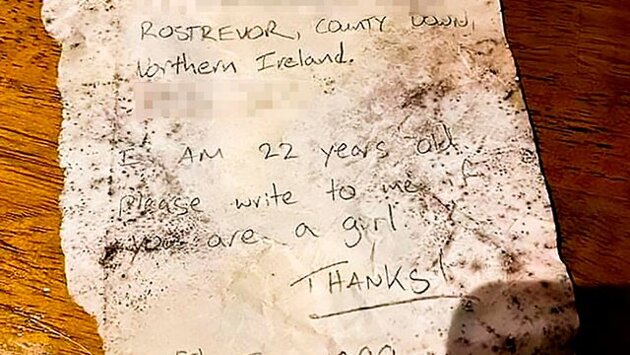 ROSTREVOR, COUNTY DOWN,
Northern Ireland.
I AM 22 years old
please write to me if
you are a girl.
THANKS!